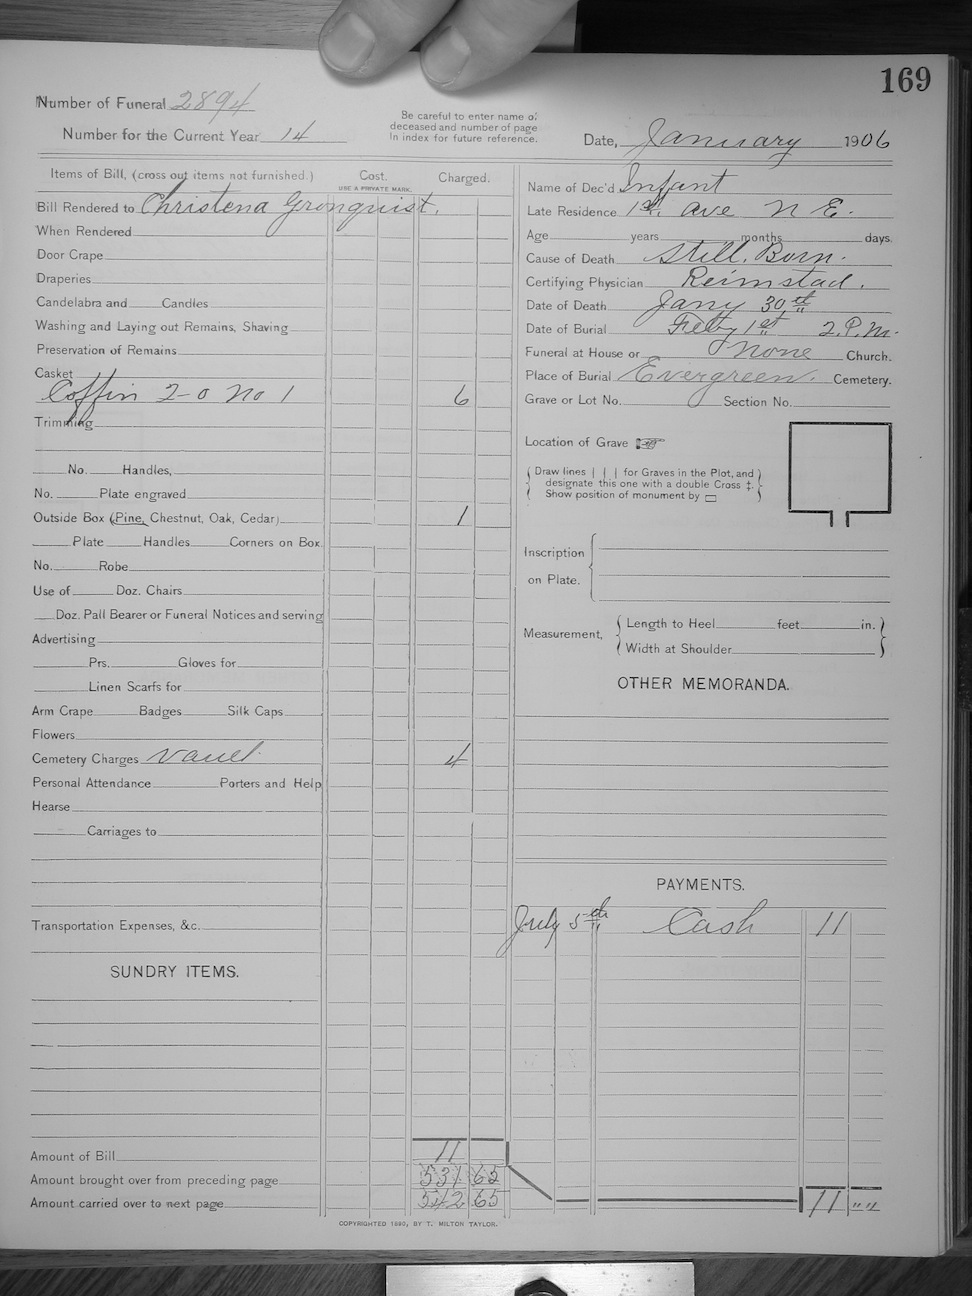 169
Number of Funeral 2894
Number for the Current Year 14
Be careful to enter name of
deceased and number of page
in index for future reference.
Date, January 1906
Items of Bill, (cross out items not furnished.)
Cost.
USE A PRIVATE MARK.
Charged.
Bill Rendered to Christena Gronquist.
When Rendered
Door Crape
Draperies
Candelabra and Candles
Washing and Laying out Remains, Shaving
Preservation of Remains
Casket
Coffin 2-0 No 1 6
Trimming
No. Handles,
No. Plate engraved
Outside Box (Pine, Chestnut, Oak, Cedar) 1
Plate Handles Corners on Box.
No. Robe
Use of Doz. Chairs
Doz. Pall Bearer or Funeral Notices and serving
Advertising
Prs. Gloves for
Linen Scarfs for
Arm Crape Badges Silk Caps
Flowers
Cemetery Charges Vault 4
Personal Attendance Porters and Help
Hearse
Carriages to
Transportation Expenses, &c.
SUNDRY ITEMS.
Amount of Bill 11
Amount brought over from preceding page 531 65
Amount carried over to next page 542 65
Name of Dec'd Infant
Late Residence 1st Ave N E.
Age years months days.
Cause of Death Still. Born.
Certifying Physician Reimstad.
Date of Death Jany 30th
Date of Burial Feby 1st 2. P.M.
Funeral at House or None Church.
Place of Burial Evergreen. Cemetery.
Grave or Lot No. Section No.
Location of Grave
Draw lines | | | for Graves in the Plot, and
designate this one with a double Cross ‡.
Show position of monument by ▭
Inscription
on Plate.
Measurement,
Length to Heel feet in.
Width at Shoulder
OTHER MEMORANDA.
PAYMENTS.
July 5th Cash 11
11 " "
COPYRIGHTED 1890, BY T. MILTON TAYLOR.